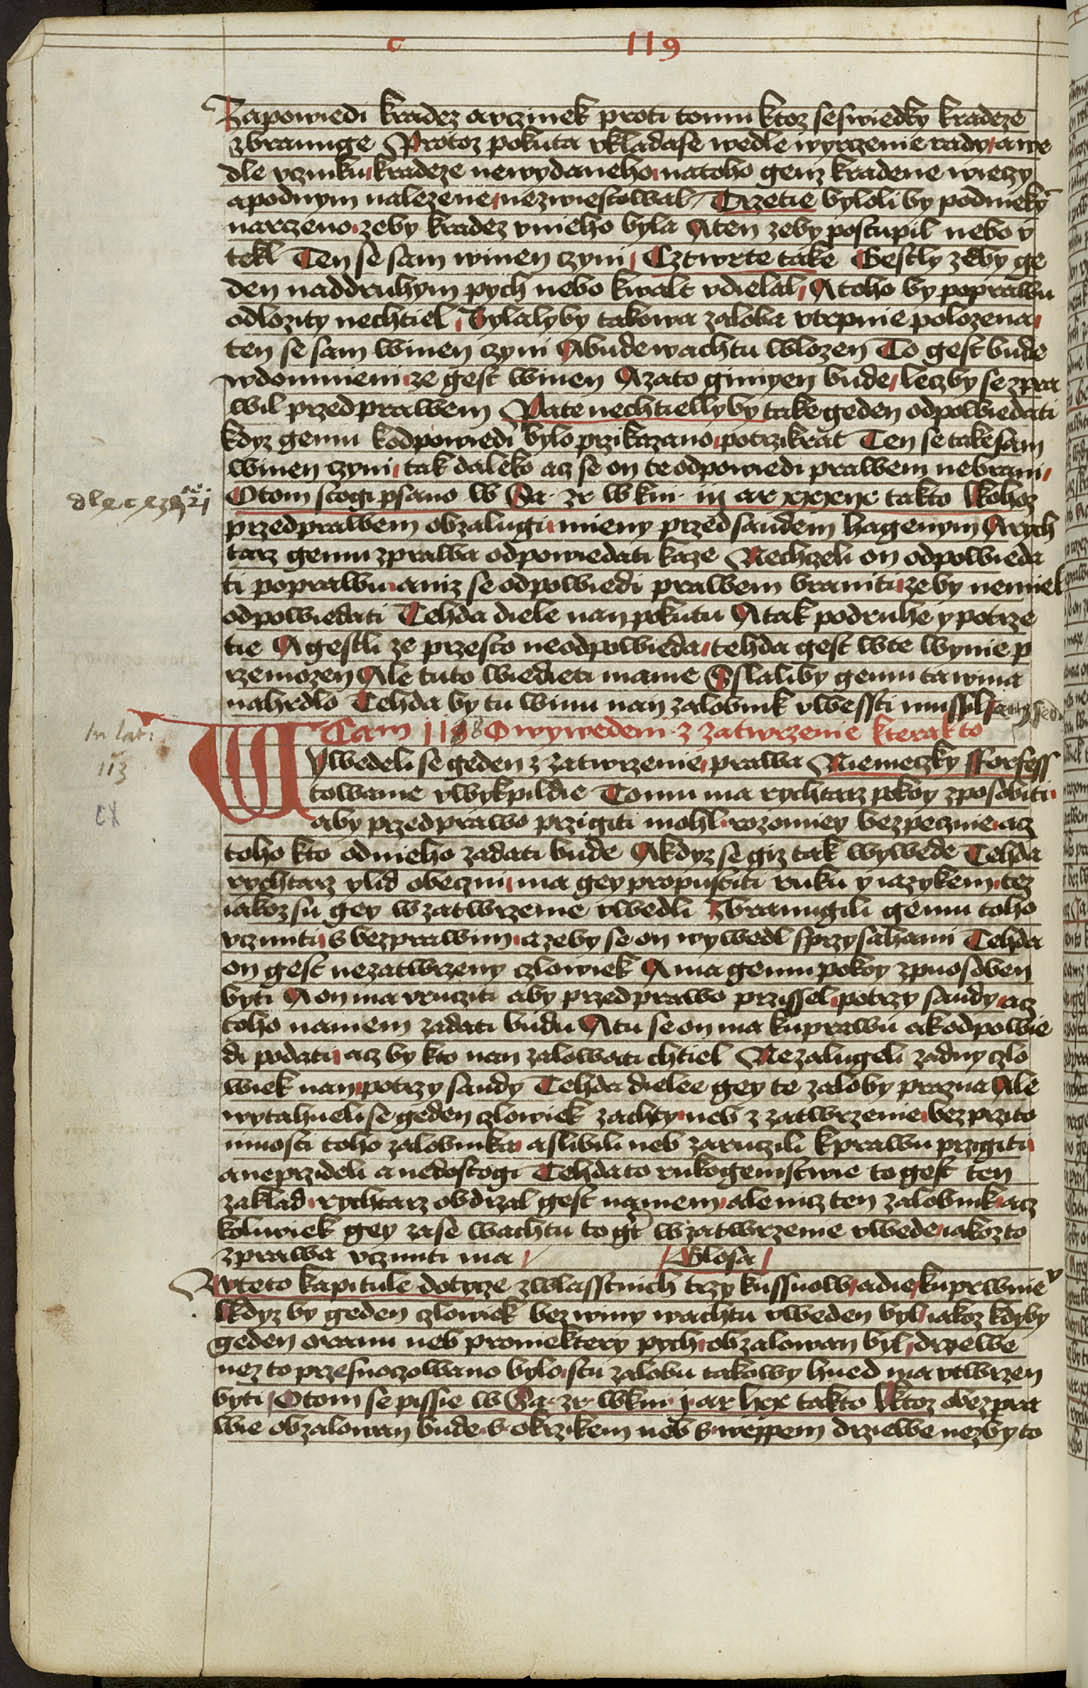 c 119
Zapowiedi kradez a vczinek proti tomu ktoz se swiedky kradeze
zbraniuge Protoz pokuta vklada se wedle wyrzczenie rady a we
dle vczinku kradeze newydaneho na toho genz kradene wieczy
a pod nym nalezene nezwiestowal Trzetie byloli by pod nieky
narzczeno zeby kradez v nieho byla A ten zeby postupil nebo v
tekl Ten se sam winen czyni Cztwrte take Gestly zeby ge
den nad druhym pych nebo kwalt vdielal A toho by poprawu
odlozity nechtiel Bylaly by takowa zaloba vtrpnie polozena
ten se sam winen czyni A bude w achtu wlozen To gest bude
w domnieni ze gest winen A zato gmiyen bude leczby se zpra
wil przed prawem Pate nechtielly by take geden odpowiedati
kdyz gemu k odpowiedi bylo przikazano po trzikrat Ten se take sam
winen czyni tak daleko acz se on te odpowiedi prawem nebrani
O tom stogi psano w Sa zr w kni iii ar xxxix takto Kohoz
przed prawem obzalugi mieny przed saudem hagenym A rych
tarz gemu zprawa odpowiedati kaze Nechzeli on odpowieda
ti po prawu aniz se odpowiedi prawem braniti zeby nemiel
odpowiedati Tehda diele nan pokutu A tak podruhe y potrze
tie A gestli ze przesto neodpowieda tehda gest w te wynie p
rzemozen Ale tuto wiedieti mame Sslaliby gemu ta wina
na hrdlo Tehda by tu winu nan zalobnik vwessti musyl
Cam 118 O wywedem z zatwrzenie kterak to
In lati
113
Wywedeli se geden z zatwrzenie prawa Niemeczky fforfess
towanie vwykpildie Tomu ma rychtarz pokoy zposobiti
aby przed prawo przigiti mohl rozomiey bezpecznie acz
toho kto od nieho zadati bude A kdyz se giz tak wywede Tehda
rychtarz y lid obeczni ma gey propustiti ruku y iazykem tez
iakoz su gey w zatwrzenie vwedli Zbranugili gemu toho
vcziniti s bezprawim a zeby se on wywedl s przysahami Tehda
on gest nezatwrzeny czlowiek A ma gemu pokoy zpuosoben
byti A on ma vrucziti aby przed prawo przissel po trzy saudy acz
toho na niem zadati budu A tu se on ma ku prawu a k odpowie
di podati acz by kto nan zalowati chtiel Nezalugeli zadny czlo
wiek nan po trzy saudy Tehda dielee gey te zaloby prazna Ale
wytahneli se geden czlowiek z achty neb z zatwrzenie bez przito
mnosti toho zalobnika a slibili neb zaruczili k prawu przigiti
a neprzideli a nedostogi Tehda to rukogemstwie to gest ten
zaklad rychtarz obdrzal gest na niem ale nicz ten zalobnik acz
kolwiek gey zase w achtu to gt w zatwrzenie vwede iakoz to
zprawa vcziniti ma Glosa
W teto kapitule dotcze zwlasstnich trzy kussuow a die ku prwnie
Kdyz by geden czlowiek bez winy w achtu vweden byl iakoz kdyby
geden o ranu neb pro niektery pych obzalowan byl drziewe
nez to przesuoczowano bylo s tu zalobu takowy hned ma vtwrzen
byti O tom se pissie w Sa zr w kni i ar lxx takto Ktoz o bezpra
wie obzalowan bude s okrzikem neb s weppem drziewe nez by to